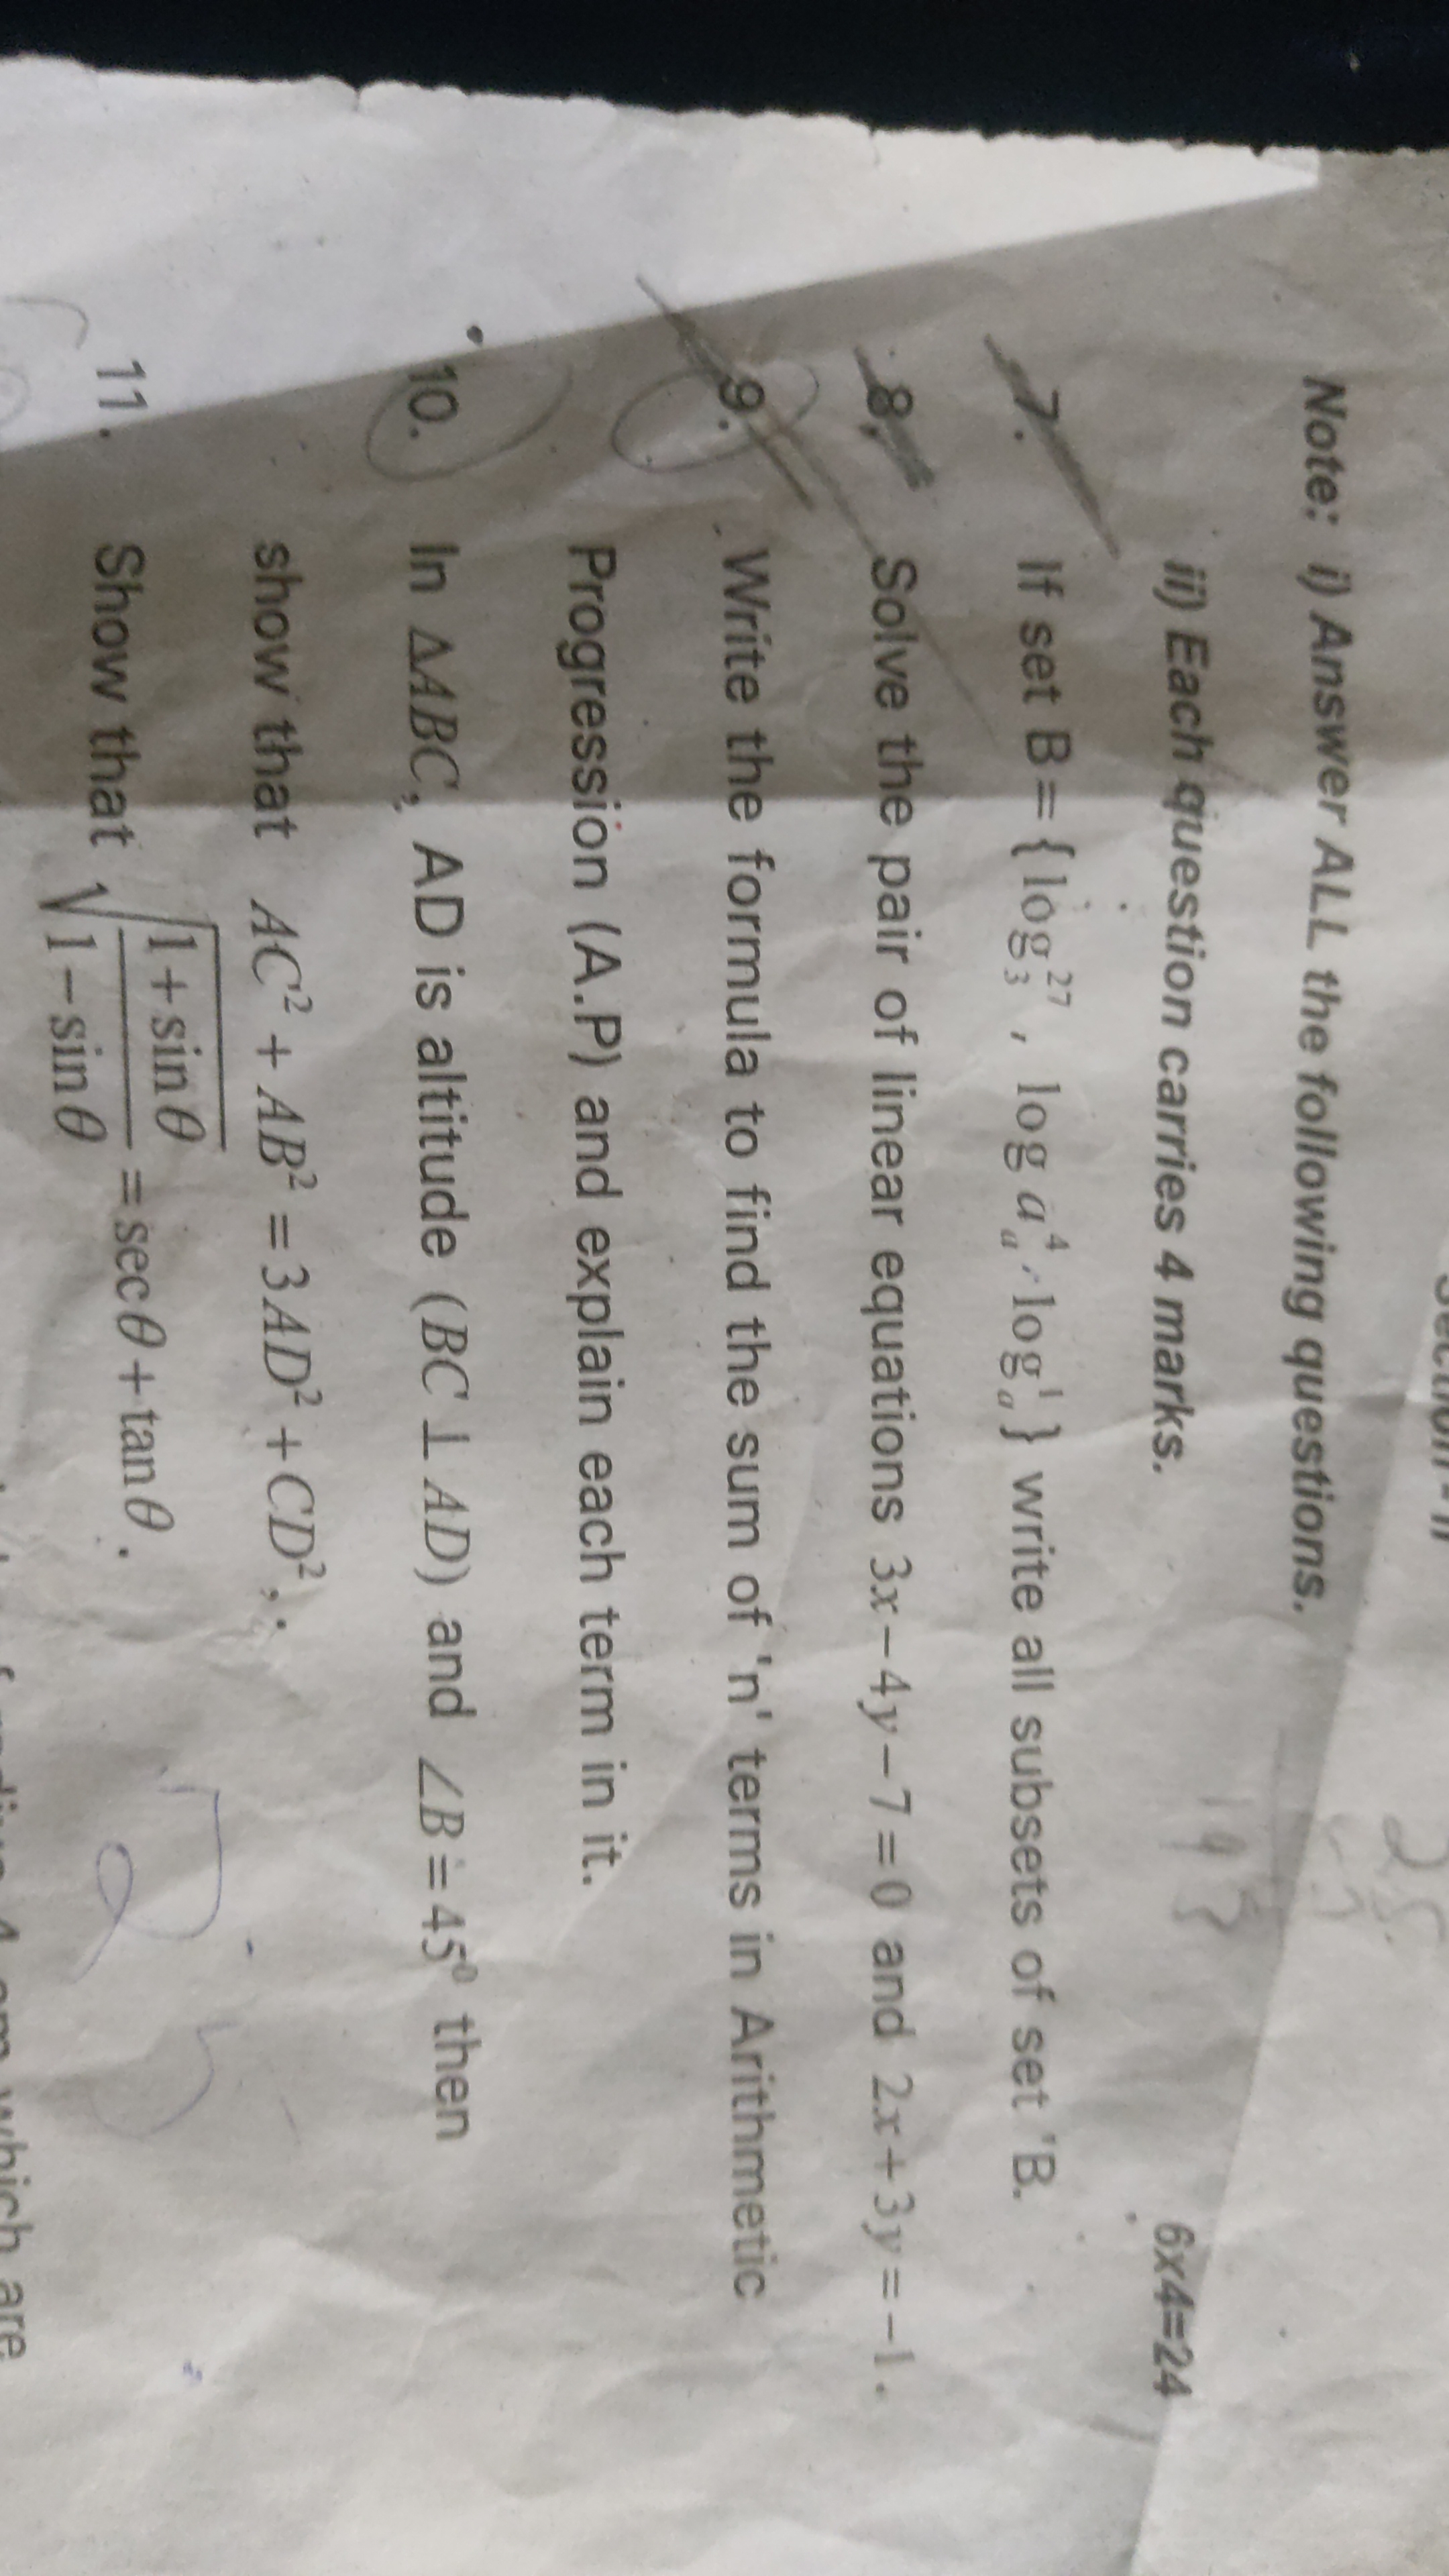 Note: i) Answer ALL the following questions.
ii) Each question carries 4 marks. 6x4=24
7. If set B = { log₃²⁷ , log aₐ⁴ , logₐ¹ } write all subsets of set 'B.
8. Solve the pair of linear equations 3x−4y−7=0 and 2x+3y=−1.
9. Write the formula to find the sum of 'n' terms in Arithmetic
Progression (A.P) and explain each term in it.
10. In ΔABC, AD is altitude (BC ⊥ AD) and ∠B=45⁰ then
show that AC² + AB² = 3AD² + CD²,
11. Show that √((1+sinθ)/(1−sinθ)) = secθ + tanθ.
which are